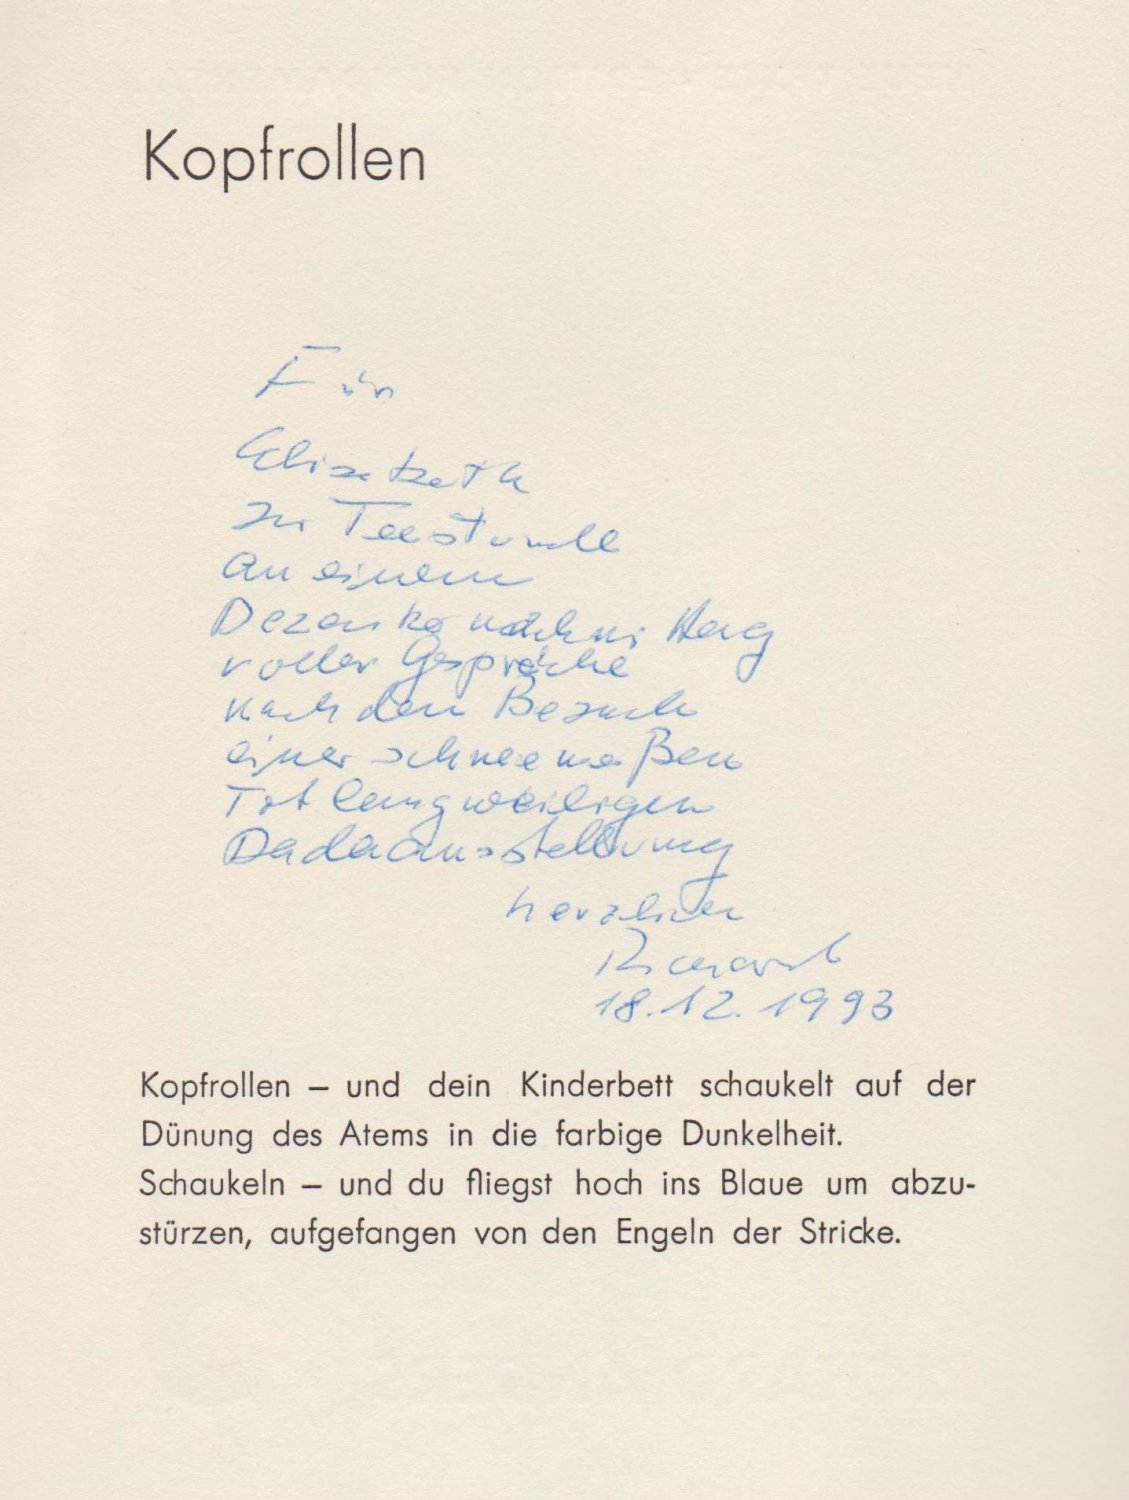 Kopfrollen
Für
Elisabeth
zur Teestunde
an einem
Dezembernachmittag
voller Gespräche
nach dem Besuch
einer
totlangweiligen
Dadaausstellung
herzlich
18.12.1993
Kopfrollen – und dein Kinderbett schaukelt auf der
Dünung des Atems in die farbige Dunkelheit.
Schaukeln – und du fliegst hoch ins Blaue um abzu-
stürzen, aufgefangen von den Engeln der Stricke.